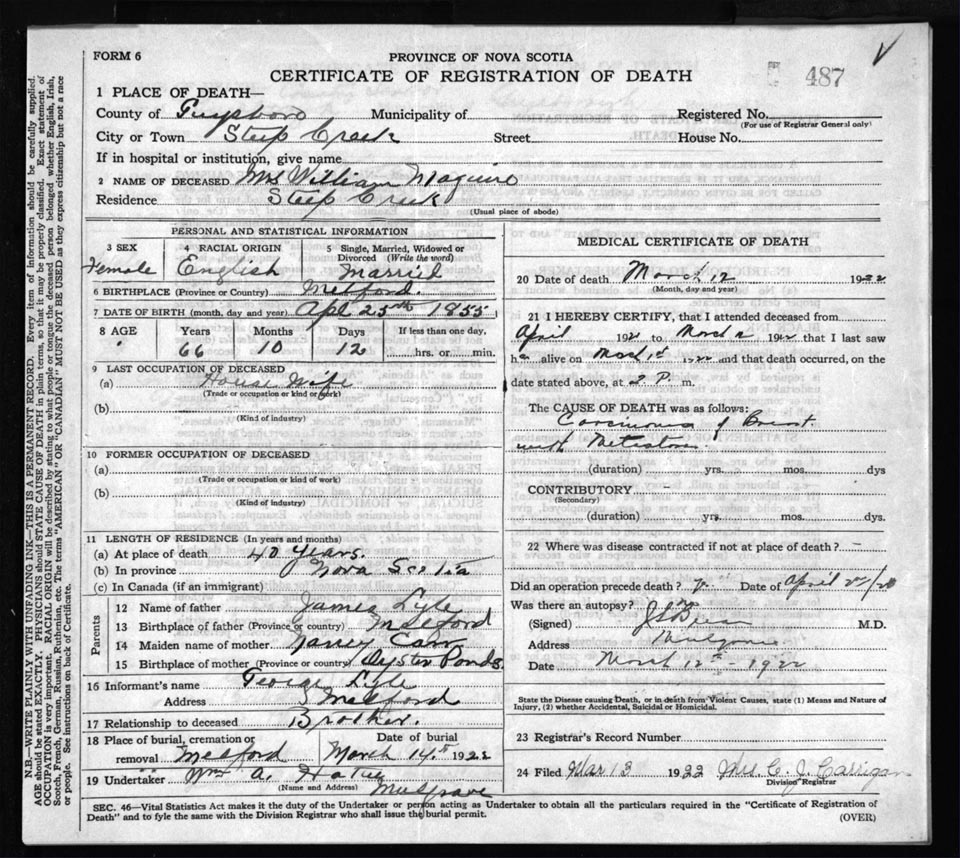 FORM 6
PROVINCE OF NOVA SCOTIA
CERTIFICATE OF REGISTRATION OF DEATH
487
1 PLACE OF DEATH—
County of Guysboro Municipality of Registered No.
(For use of Registrar General only)
City or Town Steep Creek Street House No.
If in hospital or institution, give name
2 NAME OF DECEASED Mrs William Maguire
Residence Steep Creek
(Usual place of abode)
PERSONAL AND STATISTICAL INFORMATION
3 SEX 4 RACIAL ORIGIN 5 Single, Married, Widowed or Divorced (Write the word)
Female English Married
6 BIRTHPLACE (Province or Country) Melford.
7 DATE OF BIRTH (month, day and year) Apl 25th 1855
8 AGE Years Months Days If less than one day,
66 10 12 hrs. or min.
9 LAST OCCUPATION OF DECEASED
(a) House Wife
(Trade or occupation or kind of work)
(b)
(Kind of industry)
10 FORMER OCCUPATION OF DECEASED
(a)
(Trade or occupation or kind of work)
(b)
(Kind of industry)
11 LENGTH OF RESIDENCE (In years and months)
(a) At place of death 40 years.
(b) In province Nova Scotia
(c) In Canada (if an immigrant)
Parents
12 Name of father James Lyle
13 Birthplace of father (Province or country) Melford
14 Maiden name of mother Nancy Carr
15 Birthplace of mother (Province or country) Oyster Ponds
16 Informant's name George Lyle
Address Melford
17 Relationship to deceased Brother.
18 Place of burial, cremation or removal Melford Date of burial March 14th 1922
19 Undertaker Wm A.
(Name and Address) Mulgrave
MEDICAL CERTIFICATE OF DEATH
20 Date of death March 12 1922
(Month, day and year)
21 I HEREBY CERTIFY, that I attended deceased from
April 192 to March 192 that I last saw
h alive on March 1st 1922 and that death occurred, on the
date stated above, at 2 P. m.
The CAUSE OF DEATH was as follows:
Carcinoma of Breast
with
(duration) yrs. mos. dys
CONTRIBUTORY
(Secondary)
(duration) yrs. mos. dys.
22 Where was disease contracted if not at place of death? —
Did an operation precede death? Date of April
Was there an autopsy?
(Signed) M.D.
Address Mulgrave
Date March 12th - 1922
State the Disease causing Death, or in death from Violent Causes, state (1) Means and Nature of
Injury, (2) whether Accidental, Suicidal or Homicidal.
23 Registrar's Record Number
24 Filed Mar 13 1922 Mrs. C. J. Carrigan
Division Registrar
SEC. 46—Vital Statistics Act makes it the duty of the Undertaker or person acting as Undertaker to obtain all the particulars required in the "Certificate of Registration of
Death" and to fyle the same with the Division Registrar who shall issue the burial permit.
(OVER)
N.B.—WRITE PLAINLY WITH UNFADING INK—THIS IS A PERMANENT RECORD. Every item of information should be carefully supplied.
AGE should be stated EXACTLY. PHYSICIANS should STATE CAUSE OF DEATH in plain terms, so that it may be properly classified. Exact statement of
OCCUPATION is very important. RACIAL ORIGIN will be described by stating to what people or tongue the deceased person belonged whether English, Irish,
Scotch, French, German, Russian, Ruthenian, etc. The terms "AMERICAN" OR "CANADIAN" MUST NOT BE USED as they express citizenship but not a race
or people. See instructions on back of Certificate.